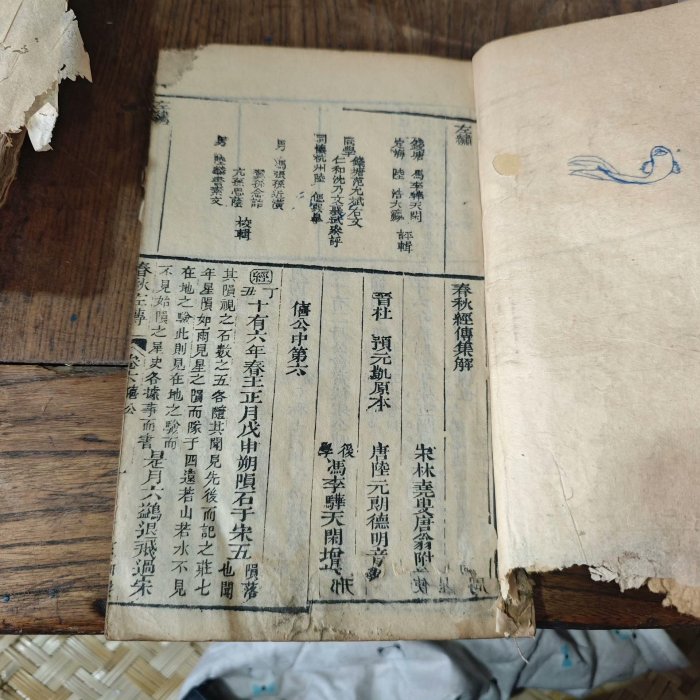 左繡
錢塘 馮李驊天閑
定海 陸 浩大瀛 評輯
同學
錢塘范允斌右文
仁和沈乃文襄武參評
男 馮張孫近潢
校輯
春秋經傳集解
宋林堯叟唐翁附
唐陸元朗德明音
晉杜 預元凱原本
後學 馮李驊天閑增
僖公中第六
經
丁丑
十有六年春王正月戊申朔隕石于宋五
隕落也聞
其隕視之石數之五各隨其聞見先後而記之莊七
年星隕如雨見星之隕而隊于四遠若山若水不見
在地之驗此則見在地之驗而
不見始隕之星史各據事而書
是月六鷁退飛過宋
春秋左傳
卷六僖公
左繡